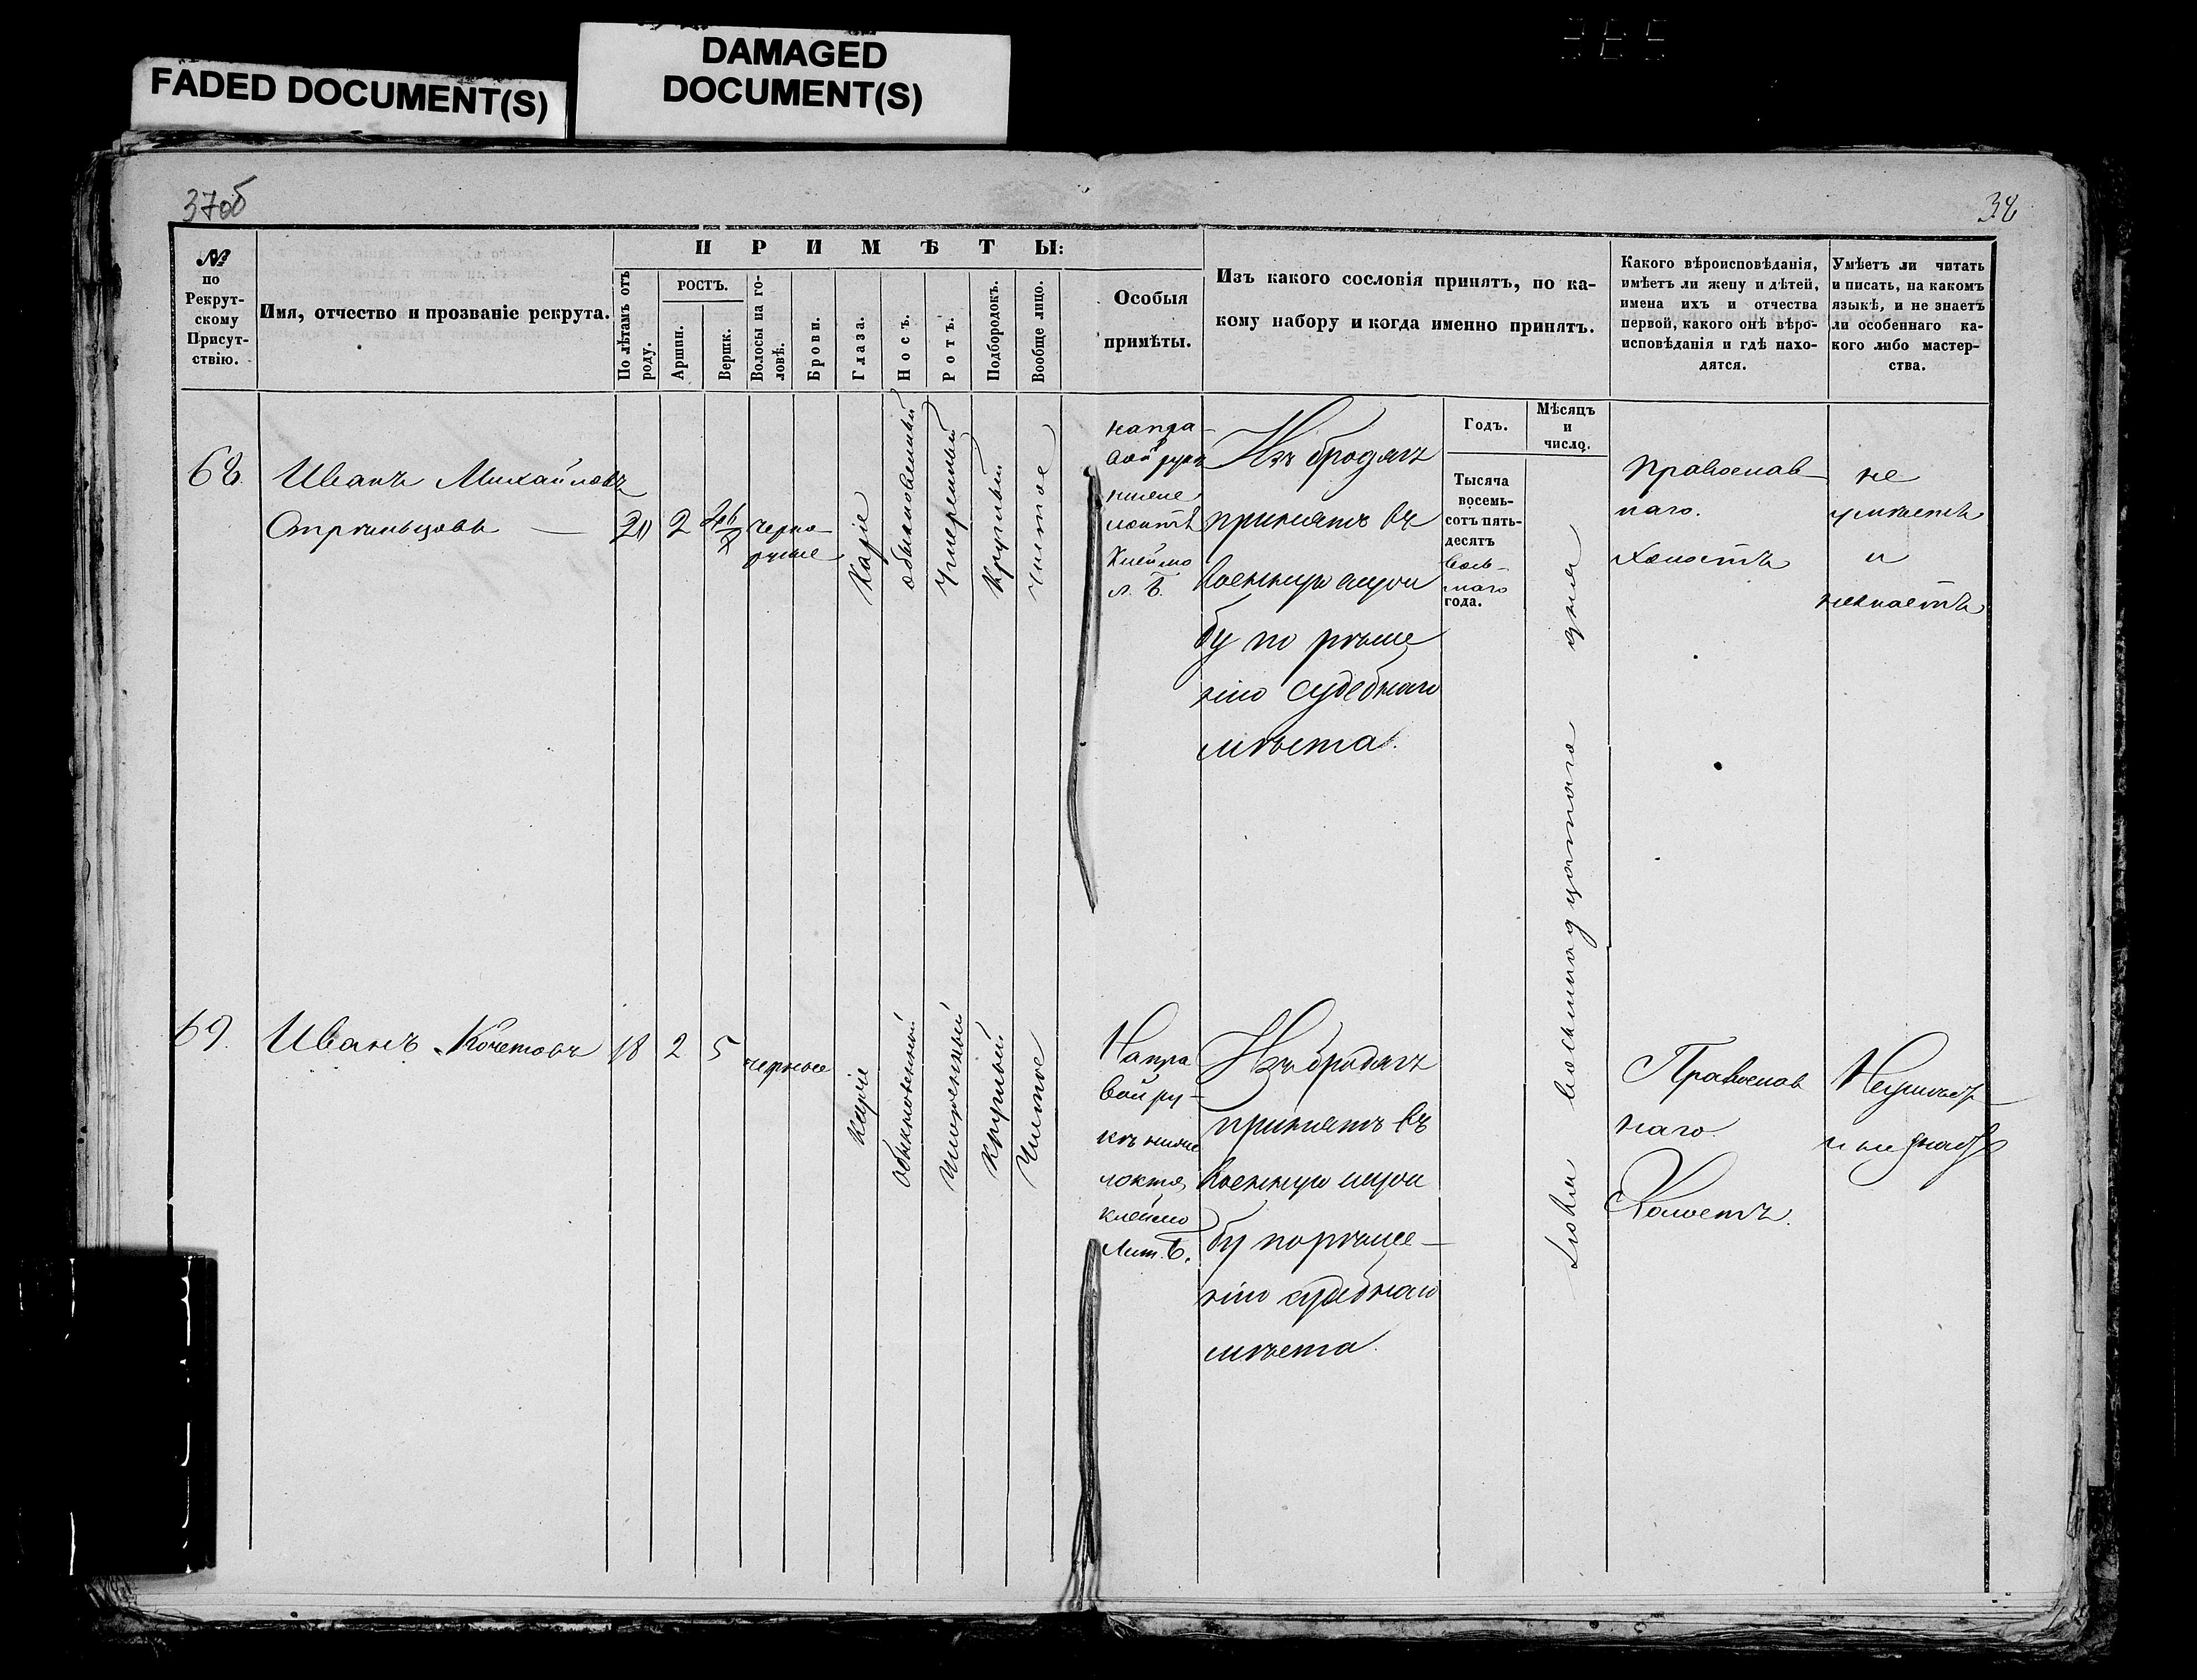 FADED DOCUMENT(S)
DAMAGED
DOCUMENT(S)
37об
38
№
по
Рекрут-
скому
Присут-
ствію.
Имя, отчество и прозваніе рекрута.
ПРИМѢТЫ:
По лѣтамъ отъ
роду.
РОСТЪ.
Аршин.
Вершк.
Волосы на го-
ловѣ.
Брови.
Глаза.
Носъ.
Ротъ.
Подбородокъ.
Вообще лицо.
Особыя
примѣты.
Изъ какого сословія принятъ, по ка-
кому набору и когда именно принятъ.
Какого вѣроисповѣданія,
имѣетъ ли жену и дѣтей,
имена ихъ и отчества
первой, какого онѣ вѣро-
исповѣданія и гдѣ нахо-
дятся.
Умѣетъ ли читать
и писать, на какомъ
языкѣ, и не знаетъ
ли особеннаго ка-
кого либо мастер-
ства.
Годъ.
Мѣсяцъ
и
число.
68.
Иванъ Михайловъ
Стрѣльцовъ
20
2
черно-
русые
Каріе
обыкновенный
Умеренный
Круглый
Чистое
на пра-
вой рукѣ
ниже
локтя
Клеймо
л. Б.
Изъ бродягъ
принятъ въ
военную служ
бу по рѣше
нію судебнаго
мѣста.
Тысяча
восемь-
сотъ пять-
десятъ
вось-
маго
года.
Іюля восемнадцатаго дня
Православ
наго.
Холостъ
не
умѣетъ
и
незнаетъ
69.
Иванъ Кочетовъ
18
2
5
черные
Каріе
Обыкновенный
Умеренный
Круглый
Чистое
На пра
вой ру-
кѣ ниже
локтя
клеймо
Лит. Б.
Изъ бродягъ
принятъ въ
военную служ
бу по рѣше-
нію судебнаго
мѣста.
Православ
наго.
Холостъ.
Неумѣетъ
и не знаетъ